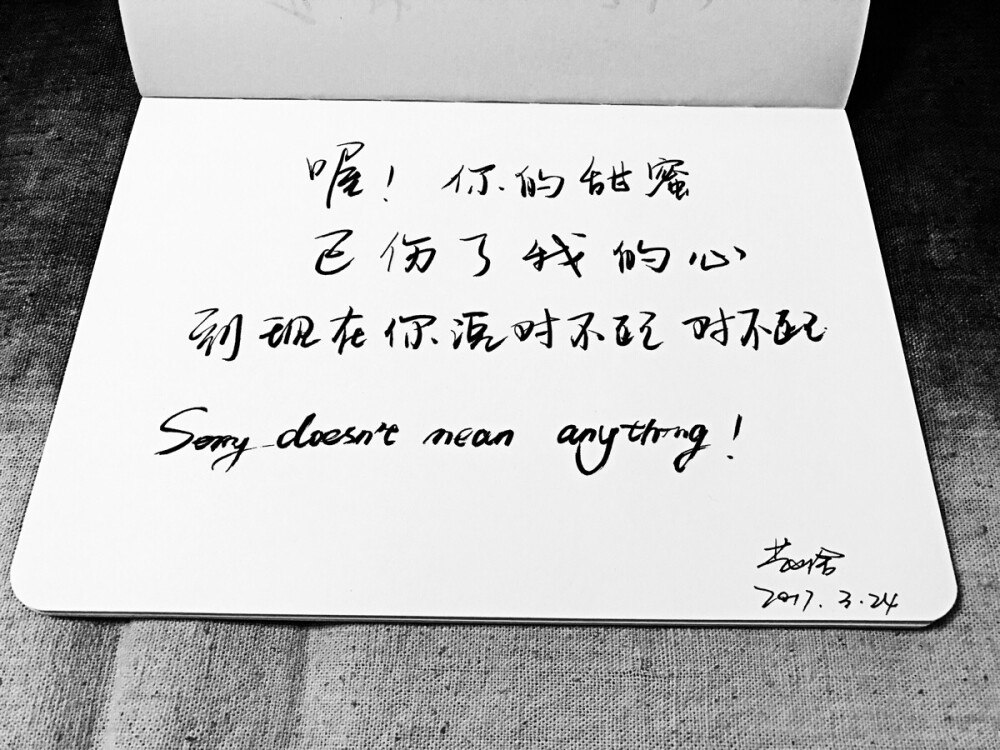 喔！你的甜蜜
已伤了我的心
到现在你说对不起 对不起
Sorry doesn't mean anything！
2017.3.24